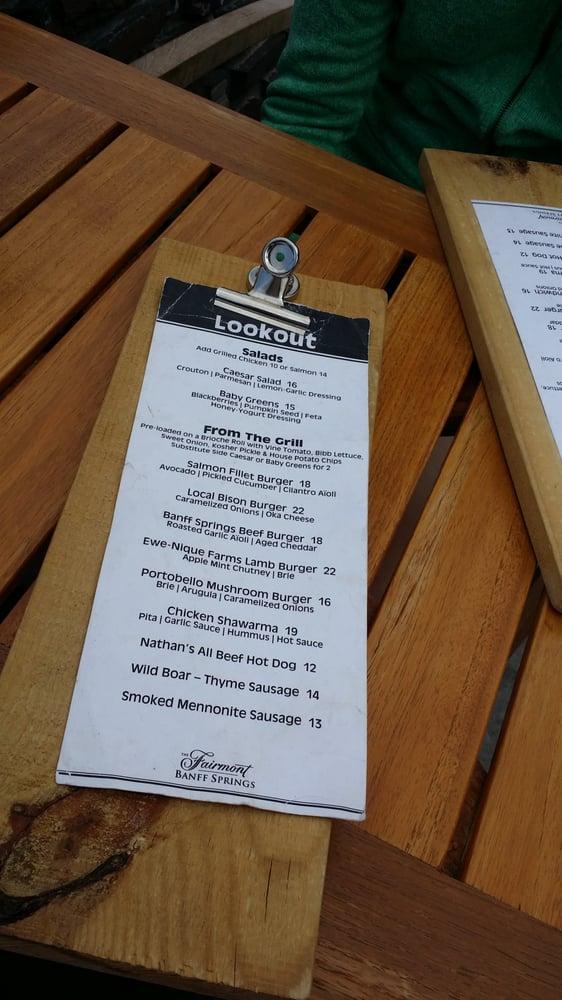 Lookout
Salads
Add Grilled Chicken 10 or Salmon 14
Caesar Salad 16
Crouton | Parmesan | Lemon-Garlic Dressing
Baby Greens 15
Blackberries | Pumpkin Seed | Feta
Honey-Yogurt Dressing
From The Grill
Pre-loaded on a Brioche Roll with Vine Tomato, Bibb Lettuce,
Sweet Onion, Kosher Pickle & House Potato Chips
Substitute Side Caesar or Baby Greens for 2
Salmon Fillet Burger 18
Avocado | Pickled Cucumber | Cilantro Aïoli
Local Bison Burger 22
Caramelized Onions | Oka Cheese
Banff Springs Beef Burger 18
Roasted Garlic Aïoli | Aged Cheddar
Ewe-Nique Farms Lamb Burger 22
Apple Mint Chutney | Brie
Portobello Mushroom Burger 16
Brie | Arugula | Caramelized Onions
Chicken Shawarma 19
Pita | Garlic Sauce | Hummus | Hot Sauce
Nathan's All Beef Hot Dog 12
Wild Boar – Thyme Sausage 14
Smoked Mennonite Sausage 13
THE Fairmont
BANFF SPRINGS
Fairmont
SPRINGS
Sausage 13
Sausage 14
Hot Dog 12
Hot Sauce
19
Onions
16
urger 22
18
Aïoli